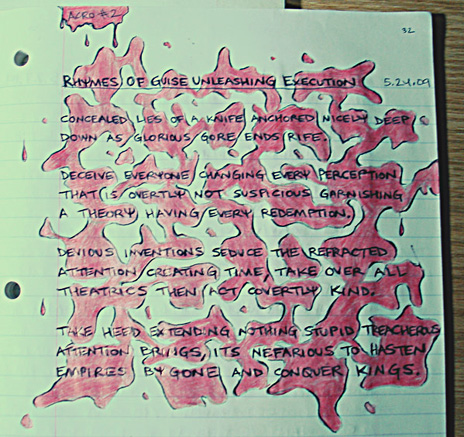 ACRO #2
32
RHYMES OF GUISE UNLEASHING EXECUTION 5.24.09
CONCEALED LIES OF A KNIFE ANCHORED NICELY DEEP
DOWN AS GLORIOUS GORE ENDS RIFE.
DECEIVE EVERYONE CHANGING EVERY PERCEPTION
THAT IS OVERTLY NOT SUSPICIOUS GARNISHING
A THEORY HAVING EVERY REDEMPTION.
DEVIOUS INVENTIONS SEDUCE THE REFRACTED
ATTENTION CREATING TIME, TAKE OVER ALL
THEATRICS THEN ACT COVERTLY KIND.
TAKE HEED EXTENDING NOTHING STUPID TREACHEROUS
ATTENTION BRINGS, ITS NEFARIOUS TO HASTEN
EMPIRES BY GONE AND CONQUER KINGS.